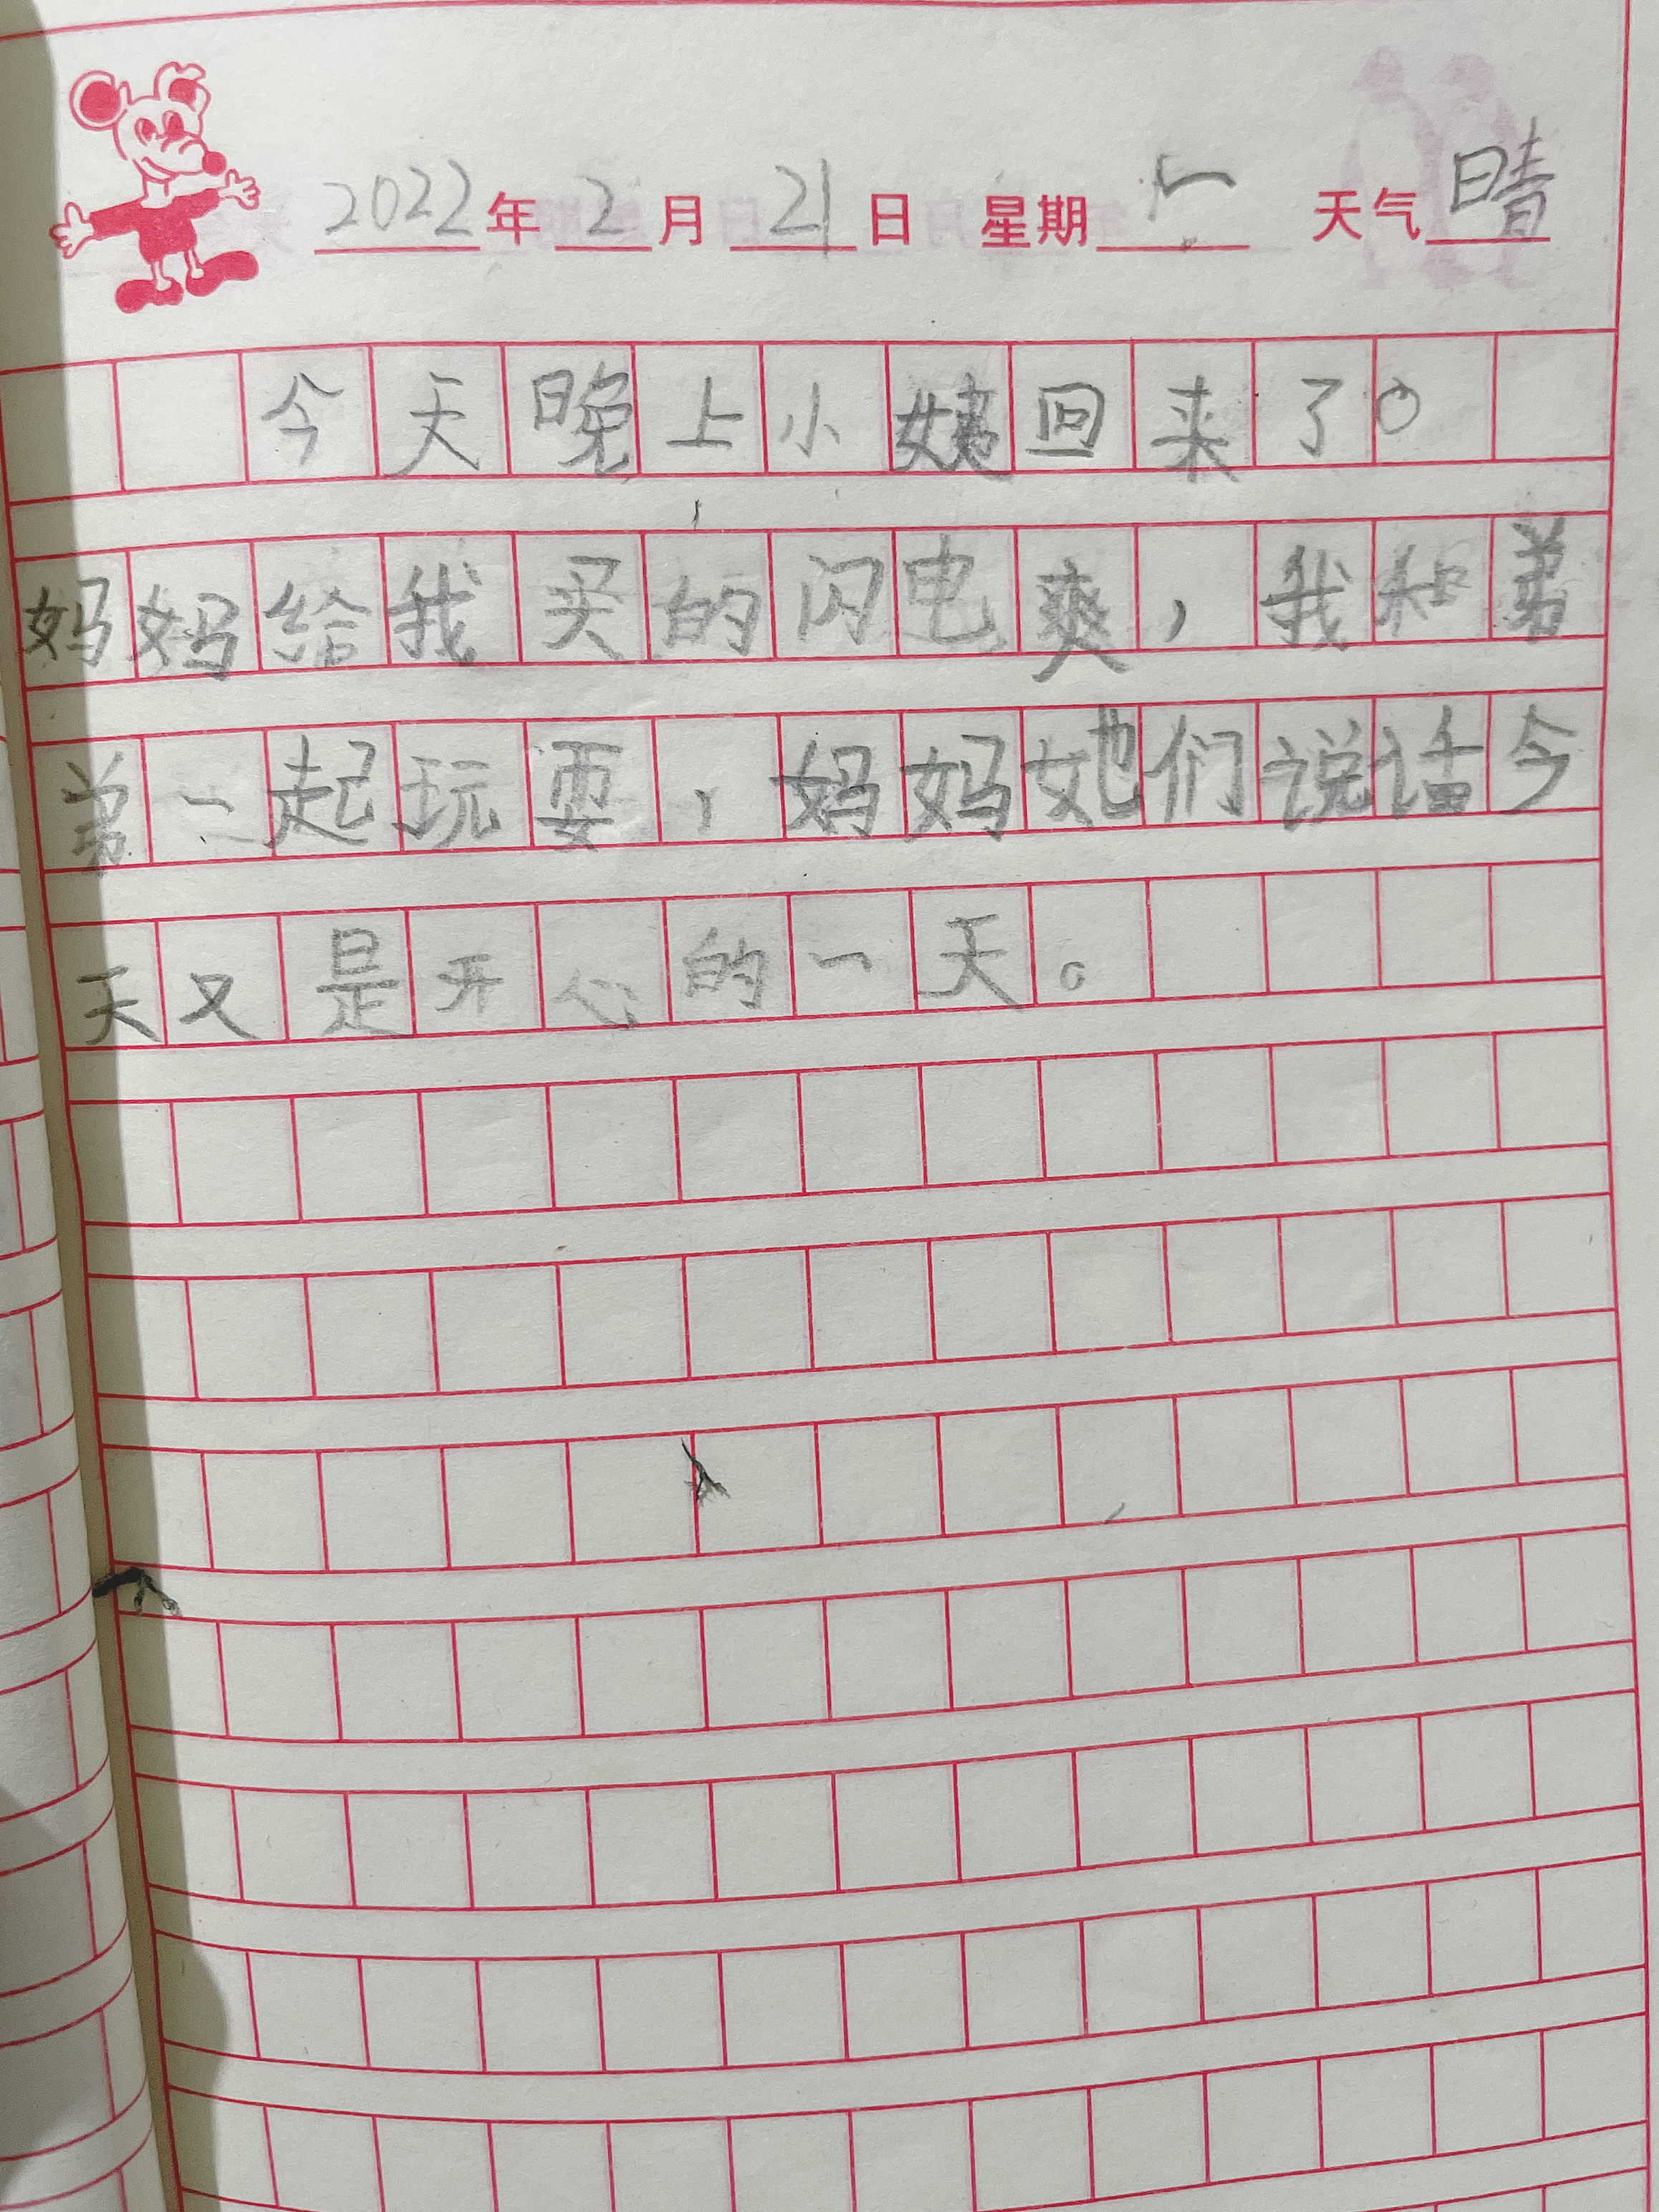 2022年2月21日 星期一 天气晴
今天晚上小姨回来了。
妈妈给我买的闪电爽，我和弟
弟一起玩耍，妈妈她们说话今
天又是开心的一天。